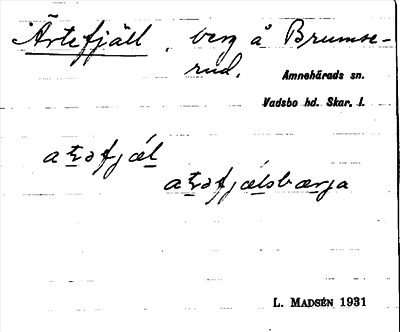 Ärtefjäll, berg å Brumse-
rud.
Amnehärads sn.
Vadsbo hd. Skar. l.
atəfjæl
atəfjælsbærja
L. MADSÉN 1931